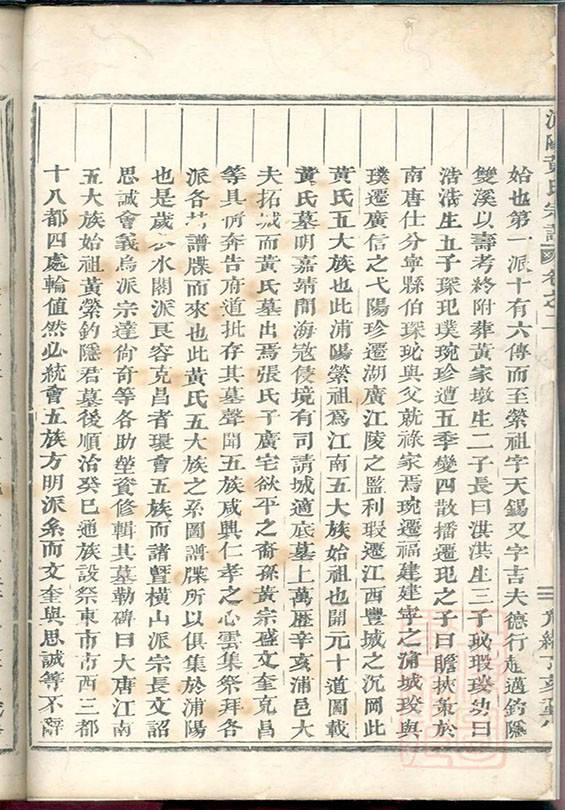 浦陽黃氏宗譜 卷之一
光緒丁亥重修
始也第一派十有六傳而至縈祖字天錫又字吉夫德行超邁釣隱
雙溪以壽考終附葬黃家墩生二子長曰淇淇生三子玫瑕璞幼曰
浩浩生五子琛玘璞琬珍遭五季變四散播遷玘之子曰瞻挾策於
南唐仕分寧縣伯琛玭與父就祿家焉琬遷福建建寧之浦城玫與
璞遷廣信之弋陽珍遷湖廣江陵之監利瑕遷江西豐城之沉岡此
黃氏五大族也此浦陽縈祖爲江南五大族始祖也開元十道圖載
黃氏墓明嘉靖間海寇侵境有司請城適底墓上萬歷辛亥浦邑大
夫拓城而黃氏墓出焉張氏子廣宅欲平之裔孫黃宗盛文奎克昌
等具情奔告府道批存其墓聲聞五族咸興仁孝之心雲集祭拜各
派各持譜牒而來也此黃氏五大族之系圖譜牒所以俱集於浦陽
也是歲公水閣派艮容克昌者環會五族而諸暨橫山派宗長文詔
思誠會義烏派宗達尙奇等各助塋資修輯其墓勒碑曰大唐江南
五大族始祖黃縈釣隱君墓後順治癸巳通族設祭東市市西三都
十八都四處輪值然必統會五族方明派系而文奎與思誠等不辭